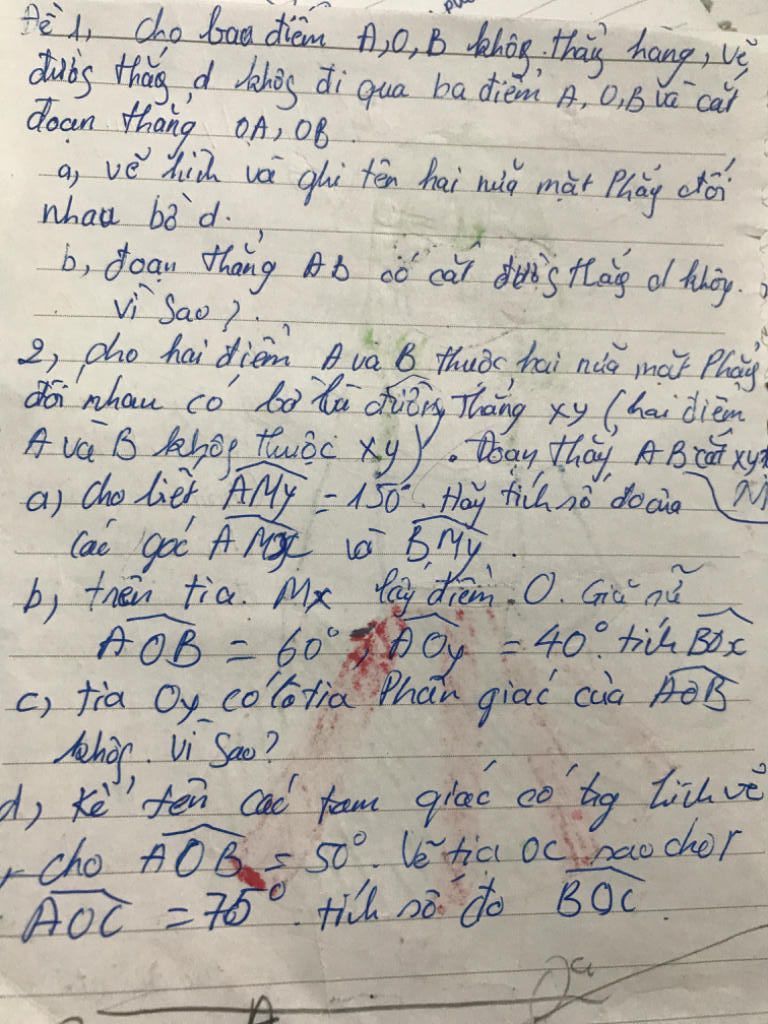 Đề 1, Cho baa điểm A,O,B không thẳng hàng, vẽ
đường thẳng d không đi qua ba điểm A, O,B và cắt
đoạn thẳng OA, OB
a, vẽ hình và ghi tên hai nửa mặt Phẳng đối
nhau bờ d.
b, đoạn thẳng AB có cắt đường thẳng d không.
Vì Sao?
2, cho hai điểm A và B thuộc hai nửa mặt Phẳng
đối nhau có bờ là đường Thẳng xy (hai điểm
A và B không thuộc xy). Đoạn thẳng AB cắt xy
a) Cho biết AMy = 150°. Hãy tính số đo của
các góc AMx và BMy.
b) trên tia Mx lấy điểm O. Giả sử
AOB = 60°, AOy = 40°. tính BOx
c, tia Oy có là tia Phân giác của AOB
không. Vì Sao?
d, Kể tên các tam giác có trg hình vẽ
, cho AOB = 50°. Vẽ tia OC sao cho
AOC = 75°. tính số đo BOC.
A